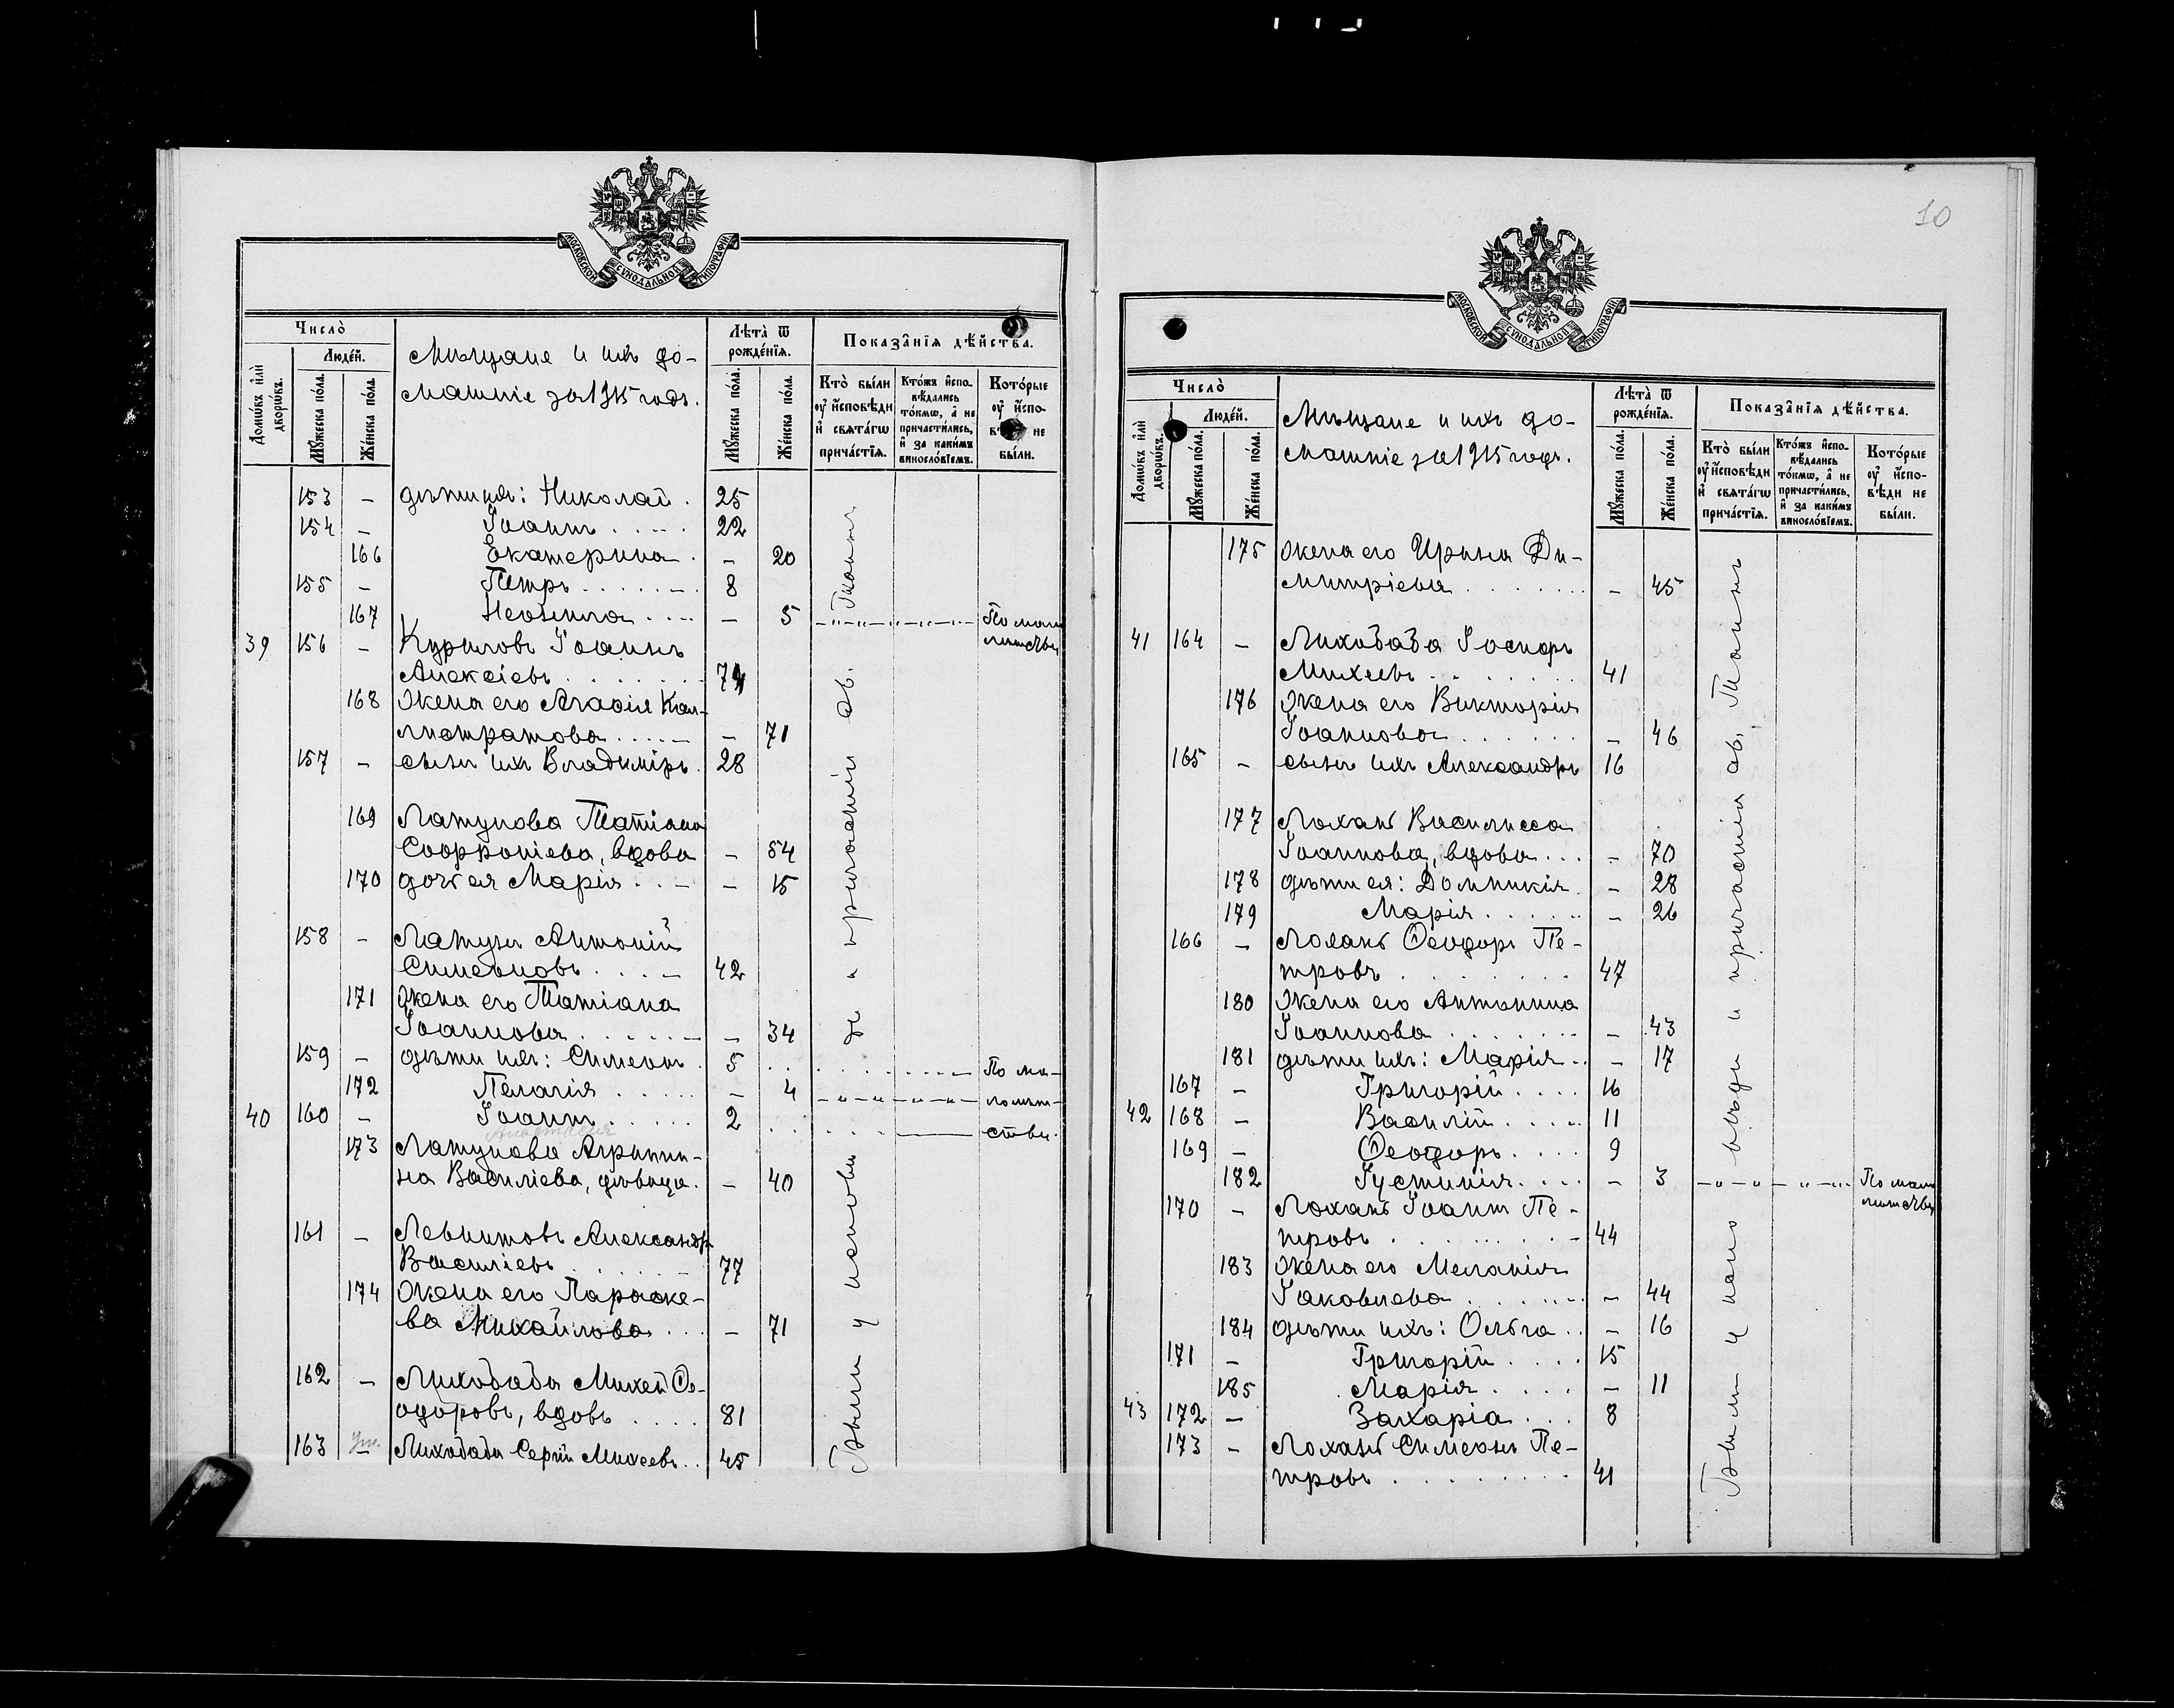 МОСКОВСКОЙ СѴНОДАЛЬНОЙ ТИПОГРАФІИ
Число̀
Люде́й.
Домѡ́въ и҆лѝ дворѡ́въ.
Мꙋ́жеска по́ла.
Же́нска по́ла.
Мѣщане и ихъ до-
машніе за 1915 годъ.
Лѣ́та ѿ рожде́нїѧ.
Мꙋ́жеска по́ла.
Же́нска по́ла.
Показа̑нїѧ дѣ́йства.
Кто̀ бы́ли ᲂу҆ и҆сповѣди и҆ свѧта́гѡ прича́стїѧ.
Кто́жъ и҆спо-вѣдались то́кмѡ, а҆ не причасти́лись, и҆ за каки́мъ винословїемъ.
Кото́рые ᲂу҆ и҆спо- не бы́ли.
153 – дѣти ихъ: Николай . 25
154 – Іоаннъ . . . . . 22
166 Екатерина . – 20
155 – Петръ . . . . . . 8
167 Неонила . . . . – 5 По мало
39 156 – Куриловъ Іоаннъ лѣтству
Алексіевъ . . . . . . 74
168 Жена его Агафія Кал-
листратова . . . . . – 71
157 – сынъ ихъ Владиміръ . 28
169 Латунова Татіана
Софроніева, вдова – 54
170 дочь ея Марія . . – – 15
158 – Латунъ Антоній
Симеоновъ . . . – 42
171 Жена его Татіана
Іоаннова . . . . . . – 34
159 – дѣти ихъ: Симеонъ . 5 По ма-
172 Пелагія . . . . . – 4 лолѣт-
40 160 – Іоаннъ . . . . . 2 ству.
Анастасія
173 Латунова Агрипи-
на Василіева, дѣвица . – 40
161 – Левшитовъ Александръ
Василіевъ . . . . . 77
174 Жена его Параске-
ва Михайлова . . . – 71
162 – Лиходѣдъ Михей Ѳе-
одоровъ, вдовъ . . . . 81
163 ум. Сергій Михеевъ . . 45
Были у исповѣди и причастія св. Таинъ
10
МОСКОВСКОЙ СѴНОДАЛЬНОЙ ТИПОГРАФІИ
Число̀
Люде́й.
Домѡ́въ и҆лѝ дворѡ́въ.
Мꙋ́жеска по́ла.
Же́нска по́ла.
Мѣщане и ихъ до-
машніе за 1915 годъ.
Лѣ́та ѿ рожде́нїѧ.
Мꙋ́жеска по́ла.
Же́нска по́ла.
Показа̑нїѧ дѣ́йства.
Кто̀ бы́ли ᲂу҆ и҆сповѣди и҆ свѧта́гѡ прича́стїѧ.
Кто́жъ и҆спо-вѣдались то́кмѡ, а҆ не причасти́лись, и҆ за каки́мъ винословїемъ.
Кото́рые ᲂу҆ и҆спо-вѣди не бы́ли.
175 жена его Ирина Ди-
митріева . . . . . . . – 45
41 164 – Лиходѣда Іосифъ
Михеевъ . . . . . . . 41
176 Жена его Викторія
Іоаннова . . . . . . – 46
165 – сынъ ихъ Александръ 16
177 Лохань Василисса
Іоаннова, вдова . . . – 70
178 дѣти ея: Домникія . – 28
179 Марія . . . . . – 26
166 – Лохань Ѳеодоръ Пе-
тровъ . . . . . . . . 47
180 Жена его Антонина
Іоаннова . . . . . . . – 43
181 дѣти ихъ: Марія . . – 17
167 – Григорій . . . . 16
42 168 – Василій . . . . 11
169 – Ѳеодоръ . . . . 9
182 Іустинія . . . . – 3 По мало
170 – Лохань Іоаннъ Пе- лѣтству
тровъ . . . . . . . – 44
183 Жена его Меланія
Іаковлева . . . . . . – 44
184 дѣти ихъ: Ольга . . – 16
171 – Григорій . . . . 15
185 Марія . . . . – 11
43 172 – Захарія . . . 8
173 – Лохань Симеонъ Пе-
тровъ . . . . . . . . . 41
Были у исповѣди и причастія св. Таинъ